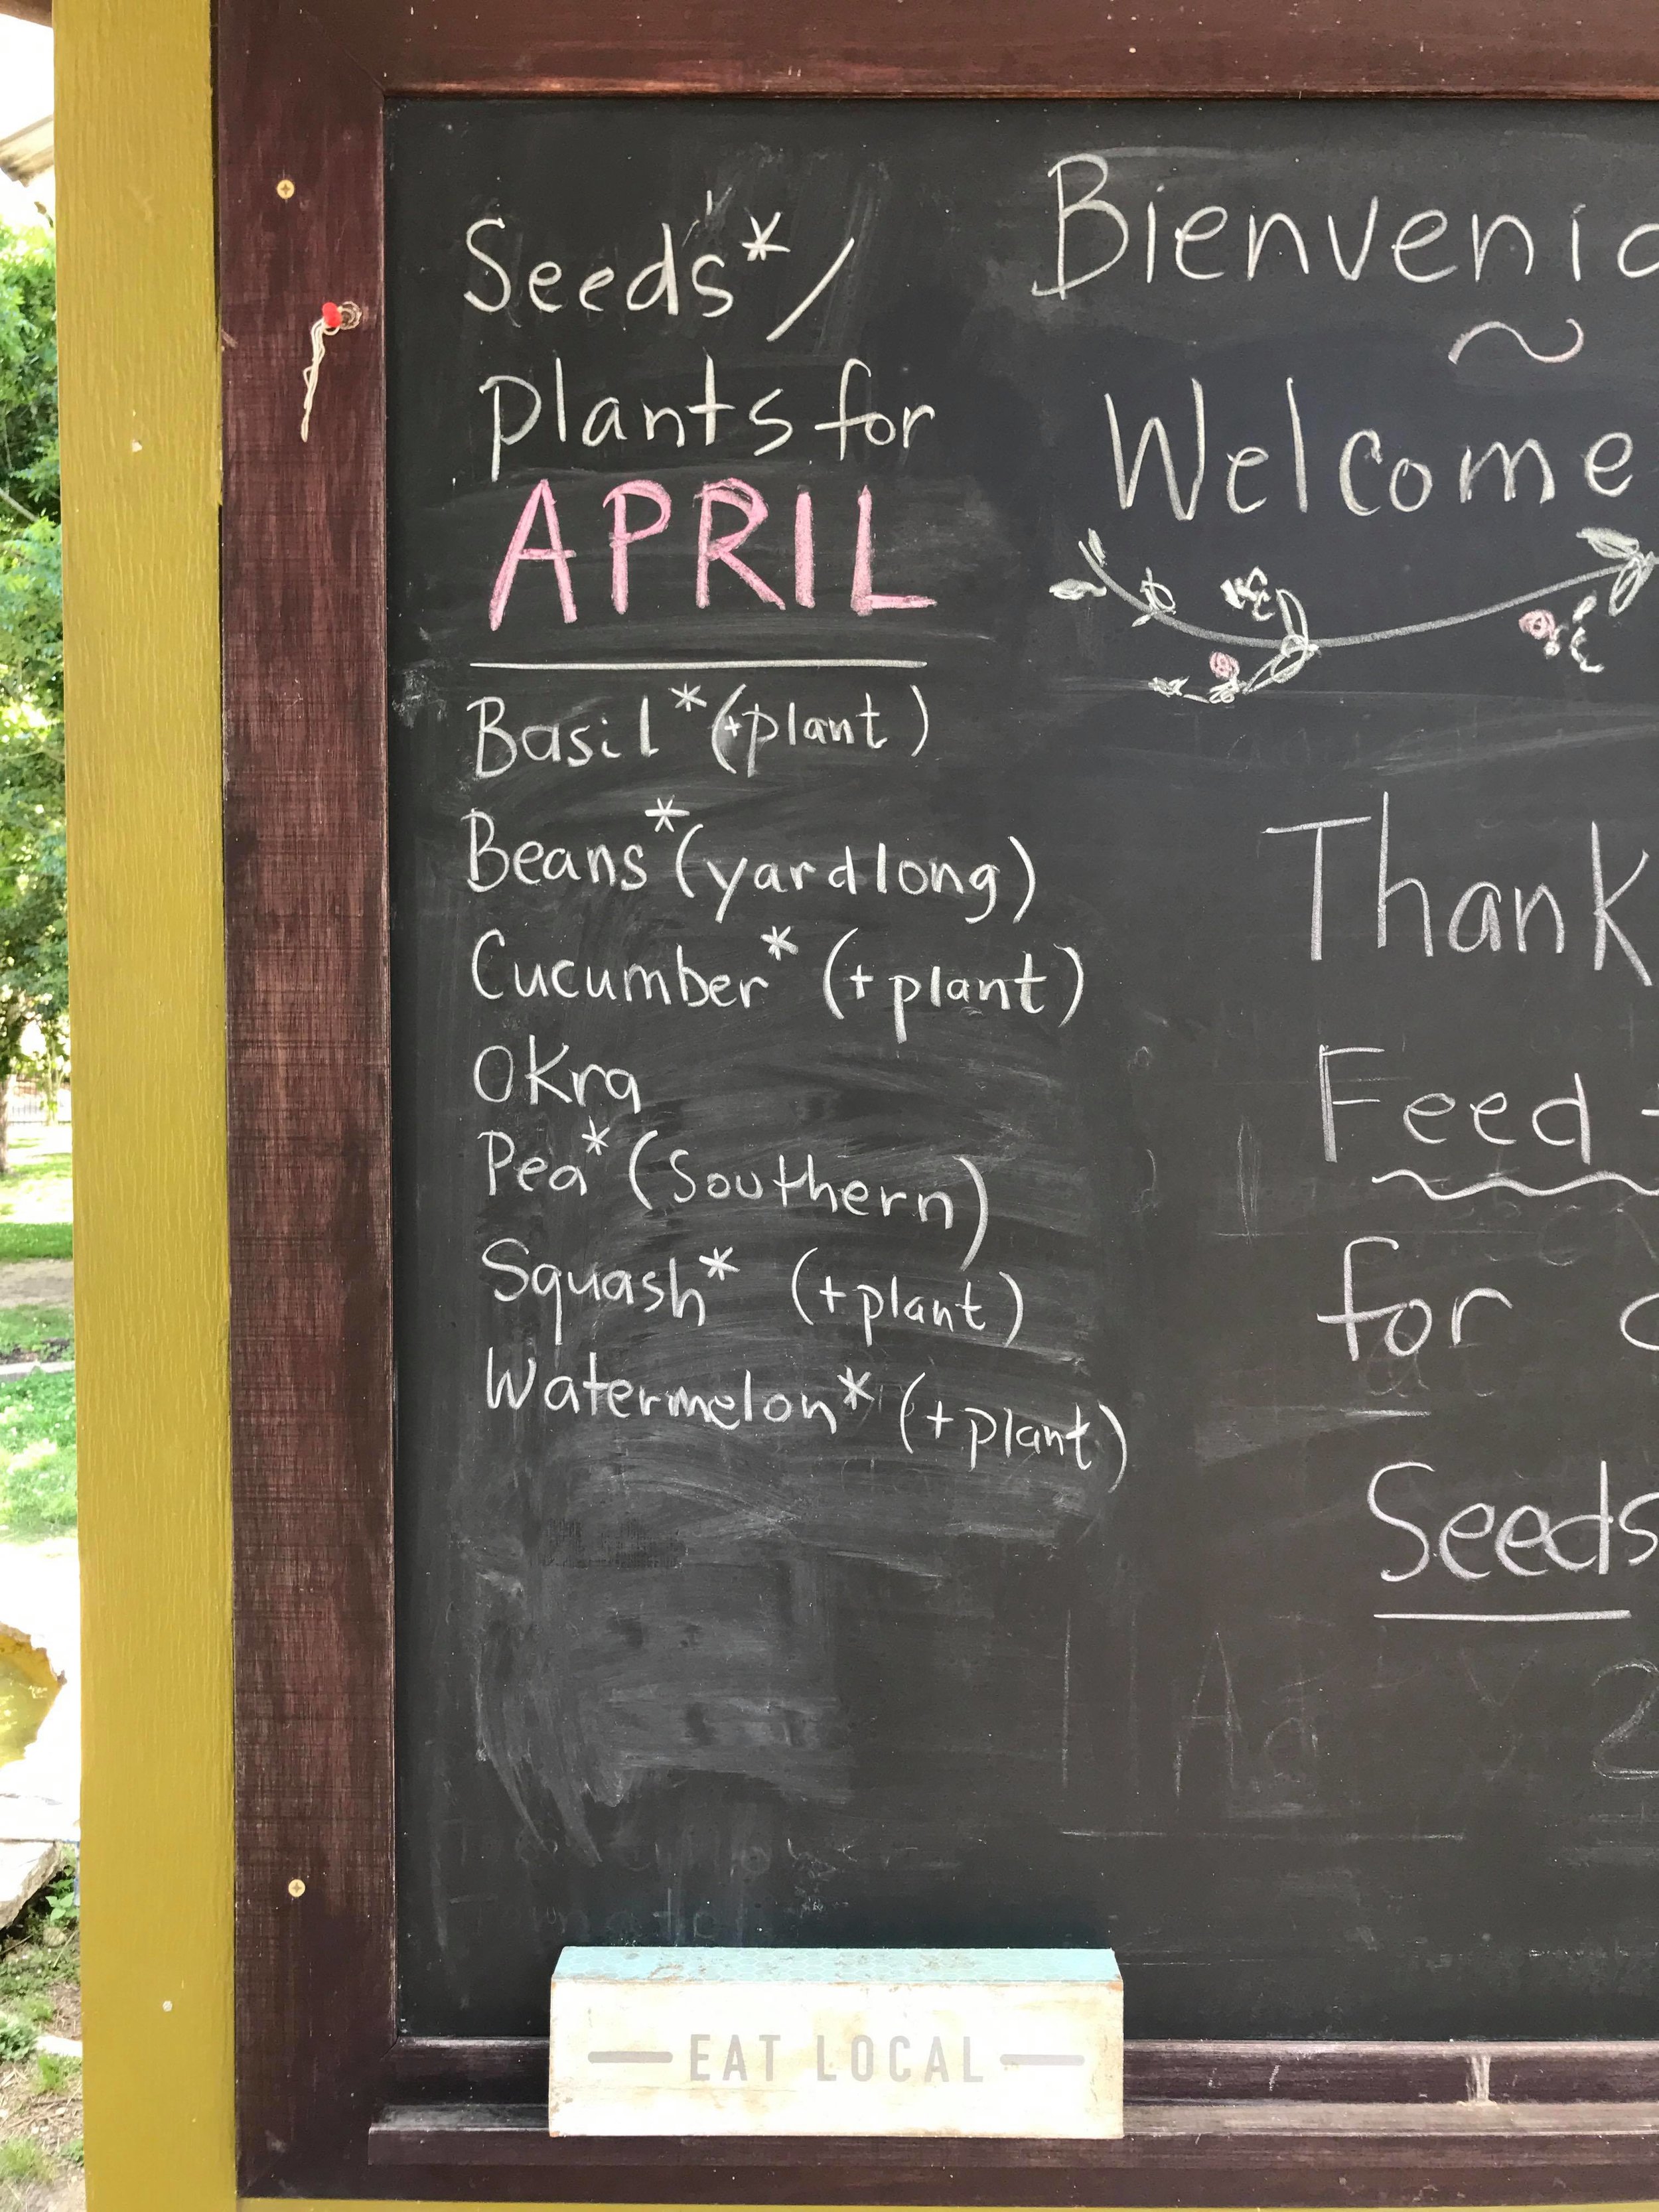 Seeds*/
plants for
APRIL
Basil* (+plant)
Beans* (yardlong)
Cucumber* (+plant)
Okra
Pea* (Southern)
Squash* (+plant)
Watermelon* (+plant)
~
Welcome
Thank
Feed
for
Seeds
EAT LOCAL